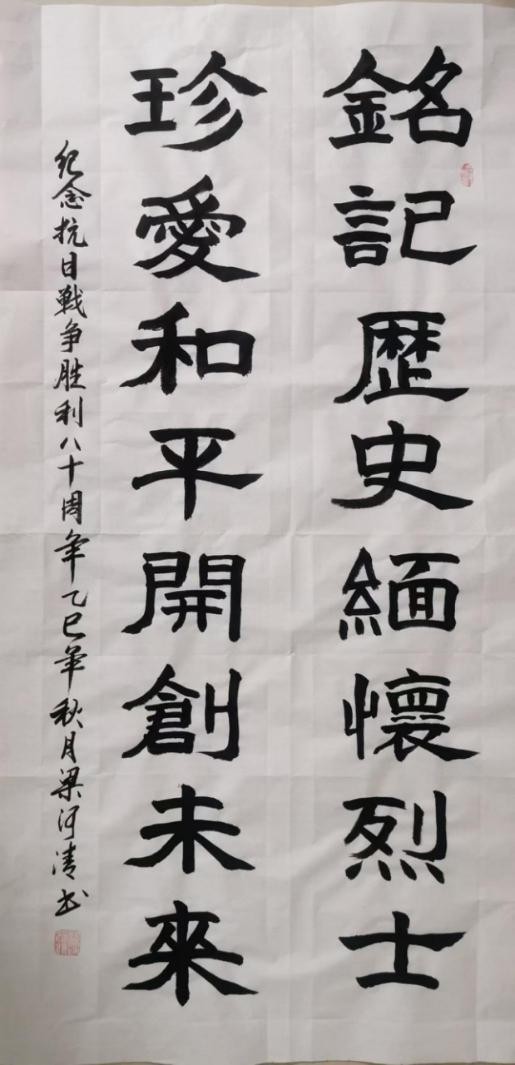 銘記歷史緬懷烈士
珍愛和平開創未來
纪念抗日战争胜利八十周年乙巳年秋月梁河清书